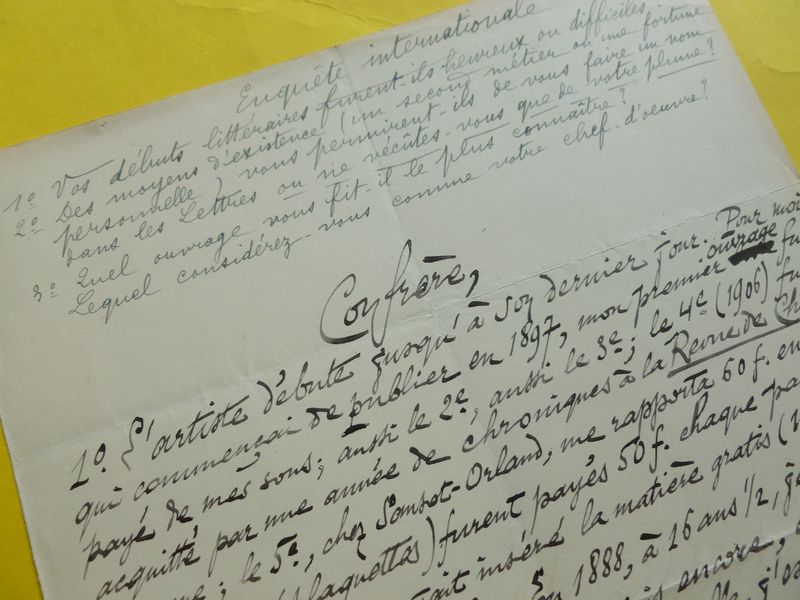 Enquête internationale
1º Vos débuts littéraires furent-ils heureux ou difficiles
2º Des moyens d'existence (un second métier ou une fortune
personnelle) vous permirent-ils de vous faire un nom
dans les Lettres ou ne vécûtes-vous que de votre plume?
3º Quel ouvrage vous fit-il le plus connaître?
Lequel considérez-vous comme votre chef-d'oeuvre?
Confrère,
1º. L'artiste débute jusqu'à son dernier jour. Pour moi
qui commençai de publier en 1897, mon premier ouvrage fu
payé de mes sous; aussi le 2e, aussi le 3e; le 4e (1906) fu
acquitté par une année de chroniques à la Revue de Ch
; le 5e, chez Sansot-Orland, me rapporta 60 f. en
plaquettes) furent payés 50 f. chaque pa
inséré la matière gratis (
1888, à 16 ans 1/2,
encore,